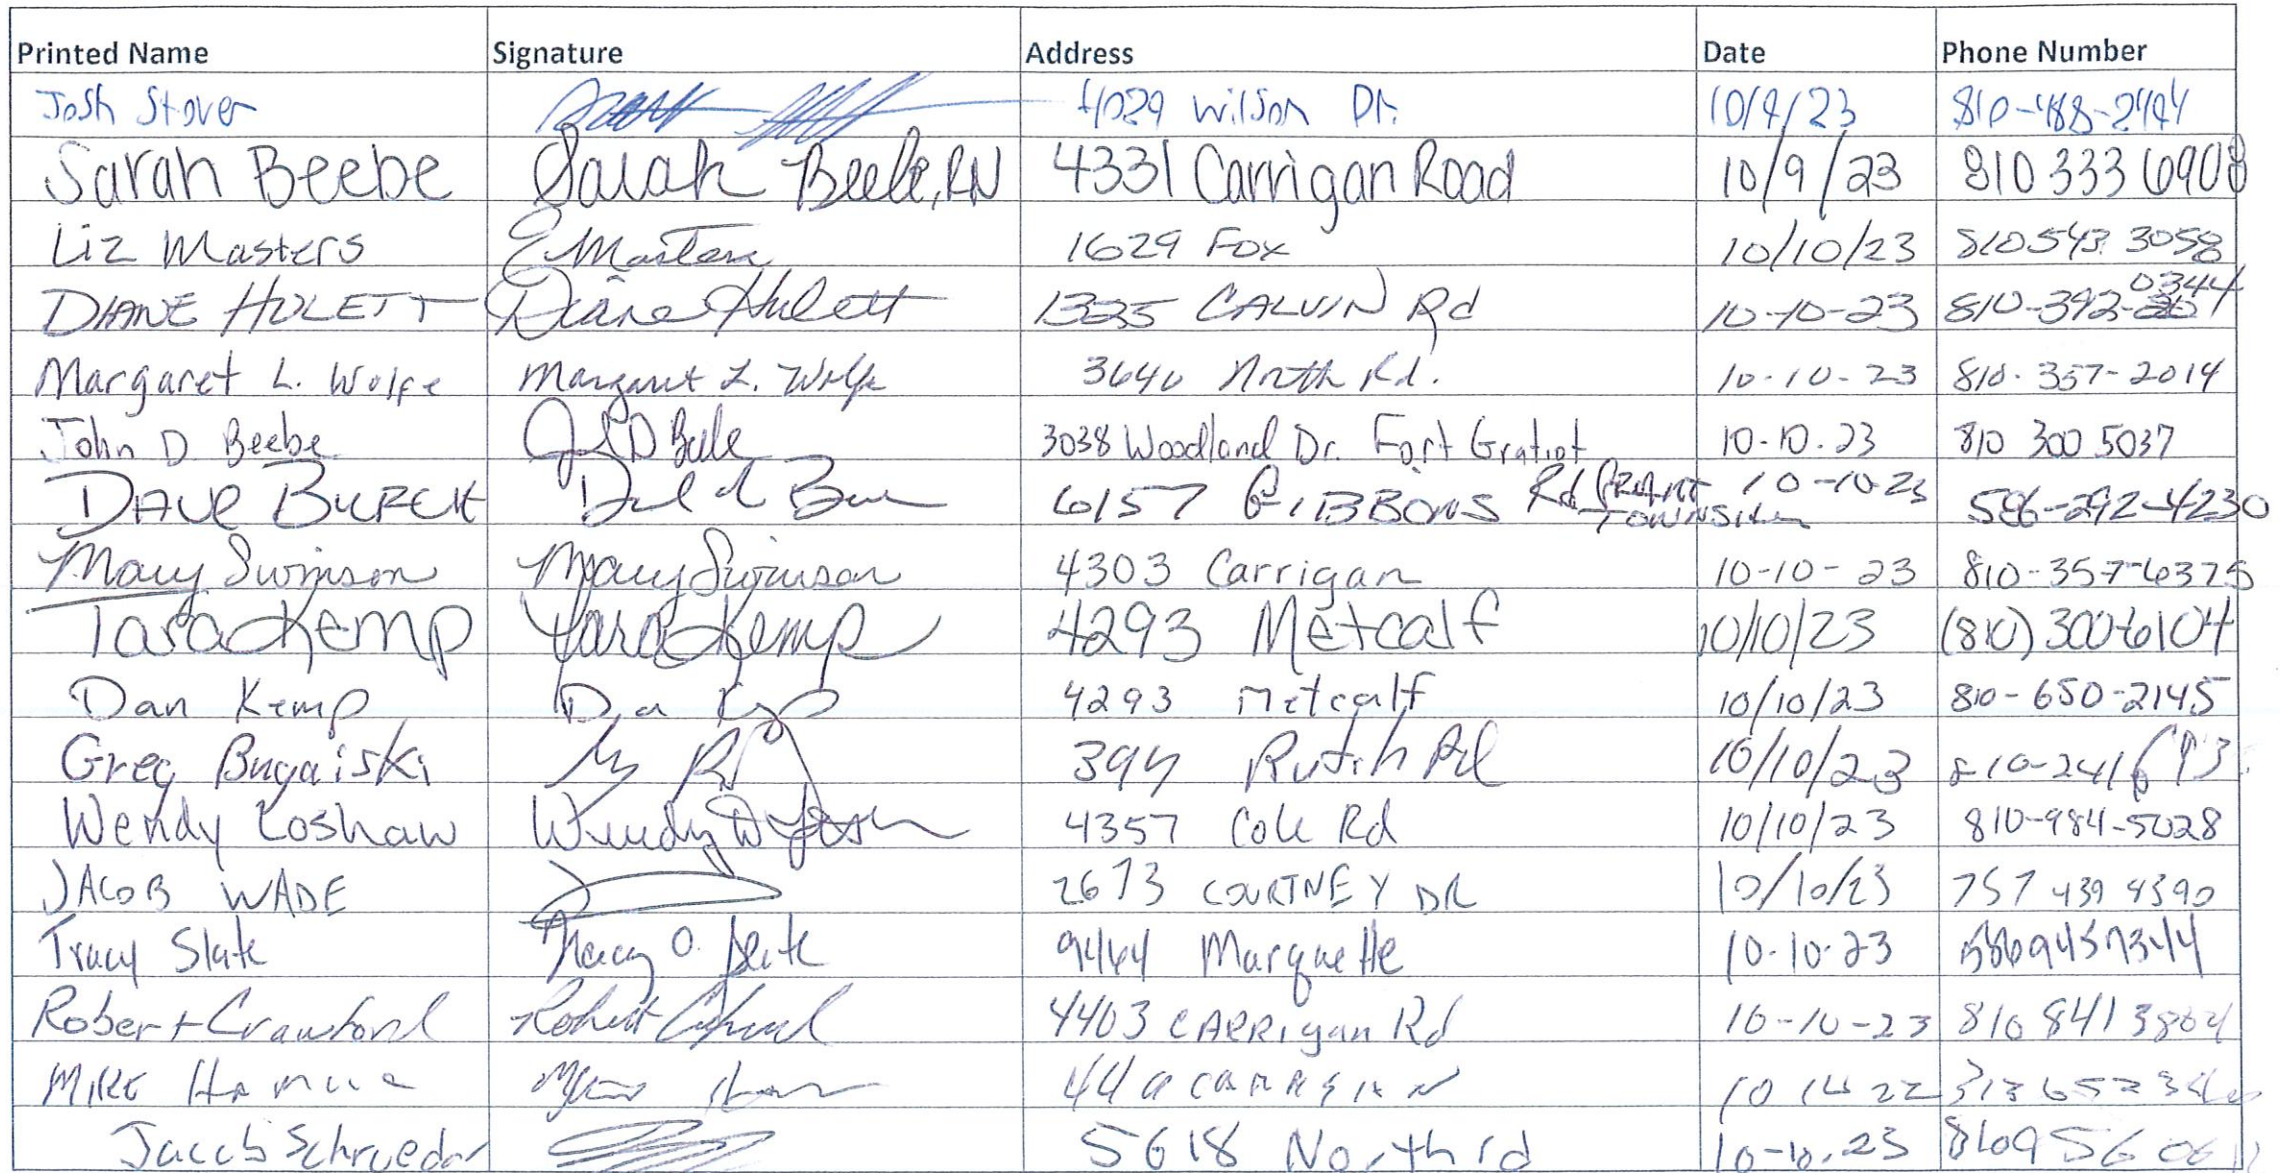 Printed Name Signature Address Date Phone Number
Josh Stover 4029 Wilson Dr. 10/9/23 810-488-2494
Sarah Beebe Sarah Beebe, RN 4331 Carrigan Road 10/9/23 810 333 6908
Liz Masters E Masters 1629 Fox 10/10/23 810 543 3058
DIANE HULETT Diane Hulett 1325 CALVIN Rd 10-10-23 810-392-0344
Margaret L. Wolfe Margaret L. Wolfe 3640 North Rd. 10-10-23 810-357-2014
John D. Beebe 3038 Woodland Dr. Fort Gratiot 10-10-23 810 300 5037
DAVE 6157 GIBBONS Rd GRANT TOWNSHIP 10-10-23 586-292-4230
Mary Swinson Mary Swinson 4303 Carrigan 10-10-23 810-357-6375
Tara Kemp Tara Kemp 4293 Metcalf 10/10/23 (810) 300-6104
Dan Kemp 4293 Metcalf 10/10/23 810-650-2145
Greg Bugaiski Rd 10/10/23
Wendy Loshaw Wendy 4357 Cole Rd 10/10/23 810-984-5028
JACOB WADE 2673 COURTNEY DR 10/10/23 757 439 4390
Tracy Slate Tracy O. Slate 9464 Marquette 10-10-23 5869457344
Robert Crawford Robert 4403 CARRIgan Rd 10-10-23 810 841 3804
MIKE
Jacob Schroeder 5618 North rd 10-10-23